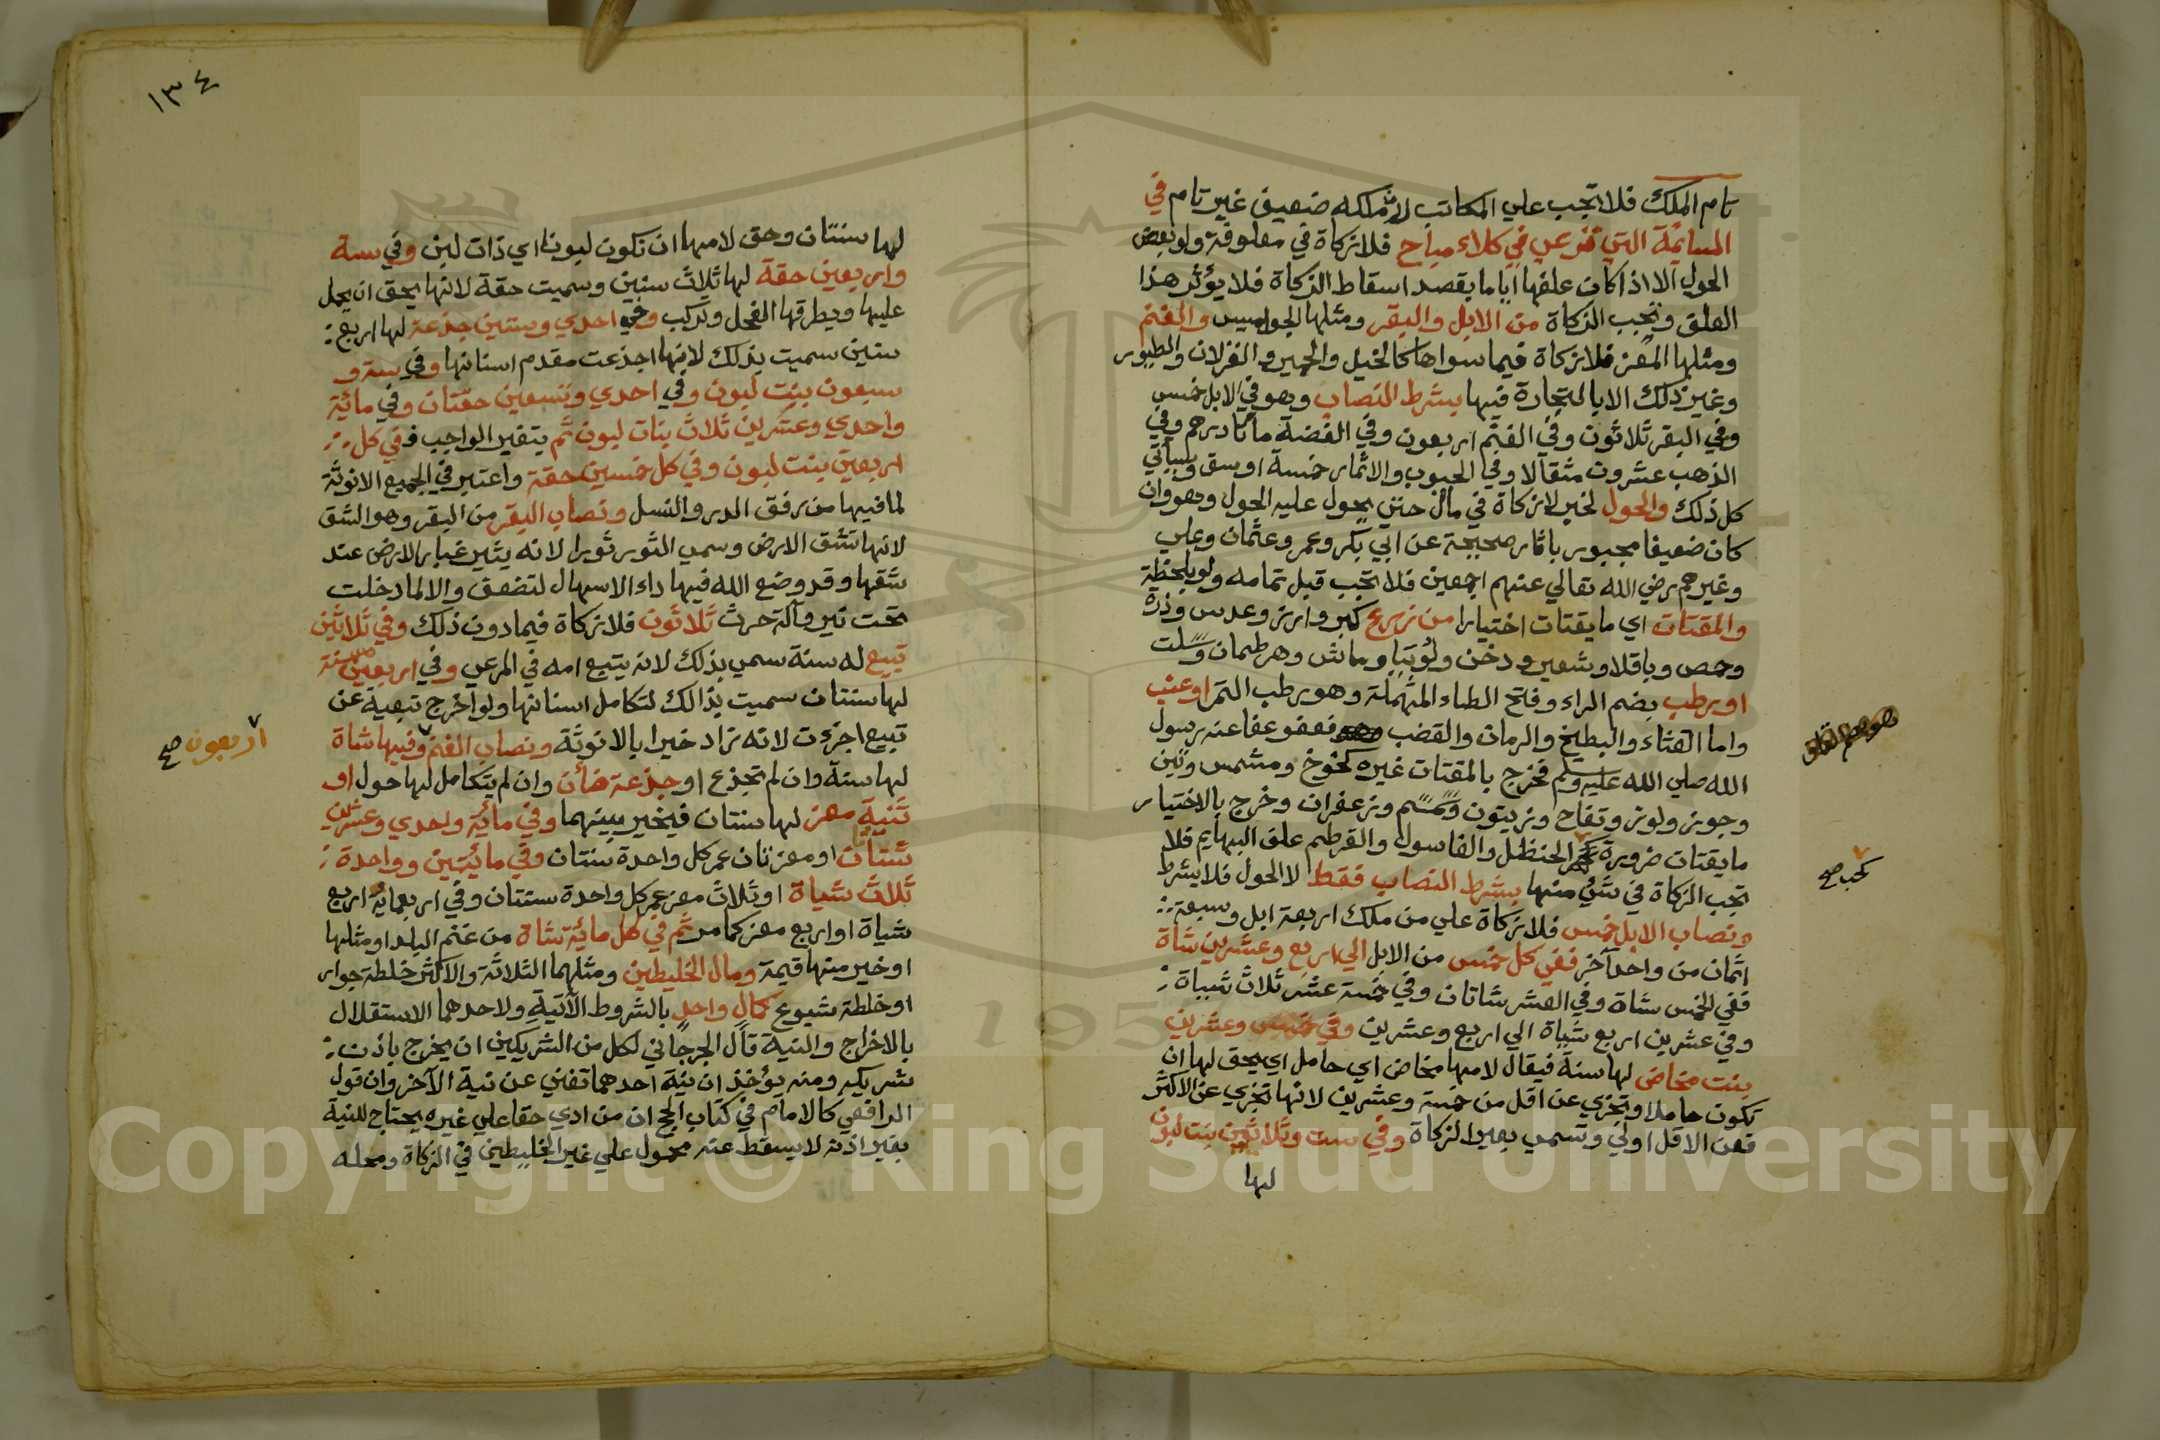 تام الملك فلا تجب علي المكاتب لان ملكه ضعيف غير تام في
السايمة التي ترعي في كلاء مباح فلا زكاة في معلوفة ولو بعض
الحول الا اذا كان علفها اياما بقصد اسقاط الزكاة فلا يؤثر هذا
العلف وتجب الزكاة من الابل والبقر ومثلها الجواميس والغنم
ومثلها المعز فلا زكاة فيما سواها كالخيل والحمير والغزلان والطيور
وغير ذلك الا بالتجارة فيها بشرط النصاب وهو في الابل خمس
وفي البقر ثلاثون وفي الغنم اربعون وفي الفضة مائتا درهم وفي
الذهب عشرون مثقالا وفي الحبوب والاثمار خمسة اوسق وسياتي
كل ذلك والحول لخبر لا زكاة في مال حتي يحول عليه الحول وهو وان
كان ضعيفا مجبور باثار صحيحة عن ابي بكر وعمر وعثمان وعلي
وغيرهم رضي الله تعالي عنهم اجمعين فلا تجب قبل تمامه ولو بلحظة
والمقتات اي ما يقتات اختيارا من زرع كبر وارز وعدس وذرة
وحمص وباقلا وشعير ودخن ولوبيا وماش وهرطمان وسلت
او رطب بضم الراء وفتح الطاء المهملة وهو رطب التمر او عنب
واما القثاء والبطيخ والرمان والقضب فعفو عفا عنه رسول
الله صلي الله عليه وسلم فخرج بالمقتات غيره كخوخ ومشمس وتين
وجوز ولوز وتفاح وزيتون وسمسم وزعفران وخرج بالاختيار
ما يقتات ضرورة كحب الحنظل والغاسول والقرطم علف البهايم فلا
تجب الزكاة في شئ منها بشرط النصاب فقط لا الحول فلا يشرط
ونصاب الابل خمس فلا زكاة علي من ملك اربعة ابل وسبعة
اثمان من واحد آخر ففي كل خمس من الابل الي اربع وعشرين شاة
ففي الخمس شاة وفي العشر شاتان وفي خمسة عشر ثلاث شياة
وفي عشرين اربع شياة الي اربع وعشرين وفي خمس وعشرين
بنت مخاض لها سنة فيقال لامها مخاض اي حامل اي يحق لها ان
تكون حاملا وتجزي عن اقل من خمسة وعشرين لانها تجزي عن الاكثر
فعن الاقل اولي وتسمي بعير الزكاة وفي ست وثلاثين بنت لبون
لها
كحب صح
١٣٤
لها سنتان وحق لامها ان تكون لبونا اي ذات لبن وفي ستة
واربعين حقة لها ثلاث سنين وسميت حقة لانها يحق ان يحمل
عليها ويطرقها الفحل وتركب وفي احدي وستين جذعة لها اربع
سنين سميت بذلك لانها اجذعت مقدم اسنانها وفي ستة و
سبعون بنت لبون وفي احدي وتسعين حقتان وفي مائية
واحدي وعشرين ثلاث بنات لبون ثم يتغير الواجب ففي كل
اربعين بنت لبون وفي كل خمسين حقة واعتبر في الجميع الانوثة
لما فيها من رفق الدر والنسل ونصاب البقر من البقر وهو الشق
لانها تشق الارض وسمي الثور ثورا لانه يثير غبار الارض عند
شقها وقد وضع الله فيها داء الاسهال لتضعف والا لما دخلت
تحت نير وآلة حرث ثلاثون فلا زكاة فيما دون ذلك وفي ثلاثين
تبيع له سنة سمي بذلك لانه يتبع امه في المرعي وفي اربعين مسنة
لها سنتان سميت بذالك لتكامل اسنانها ولو اخرج تبعية عن
تبيع اجزءت لانه زاد خيرا بالانوثة ونصاب الغنم وفيها شاة
لها سنة وان لم تجذع او جذعة ضأن وان لم يتكامل لها حول او
ثنية معز لها سنتان فيخير بينهما وفي مائية واحدي وعشرين
شتان او معزتان عمر كل واحدة سنتان وفي مائيتين وواحدة
ثلاث شياة او ثلاث معز عمر كل واحدة سنتان وفي اربعمائة اربع
شياة او اربع معز كما مر ثم في كل مائية شاة من غنم البلد او مثلها
او خير منها قيمة ومال الخليطين ومثلهما الثلاثة والاكثر خلطة جوار
او خلطة شيوع كمال واحد بالشروط الآتية ولاحدهما الاستقلال
بالاخراج والنية قال الجرجاني لكل من الشريكين ان يخرج باذن
شريكه ومنه يؤخذ ان نية احدهما تغني عن نية الآخر وان قول
الرافعي كالامام في كتاب الحج ان من ادي حقا علي غيره يحتاج للنية
بغير اذنه لا يسقط عنه محمول علي غير الخليطين في الزكاة ومحله
اربعون صح
Copyright © King Saud University
195